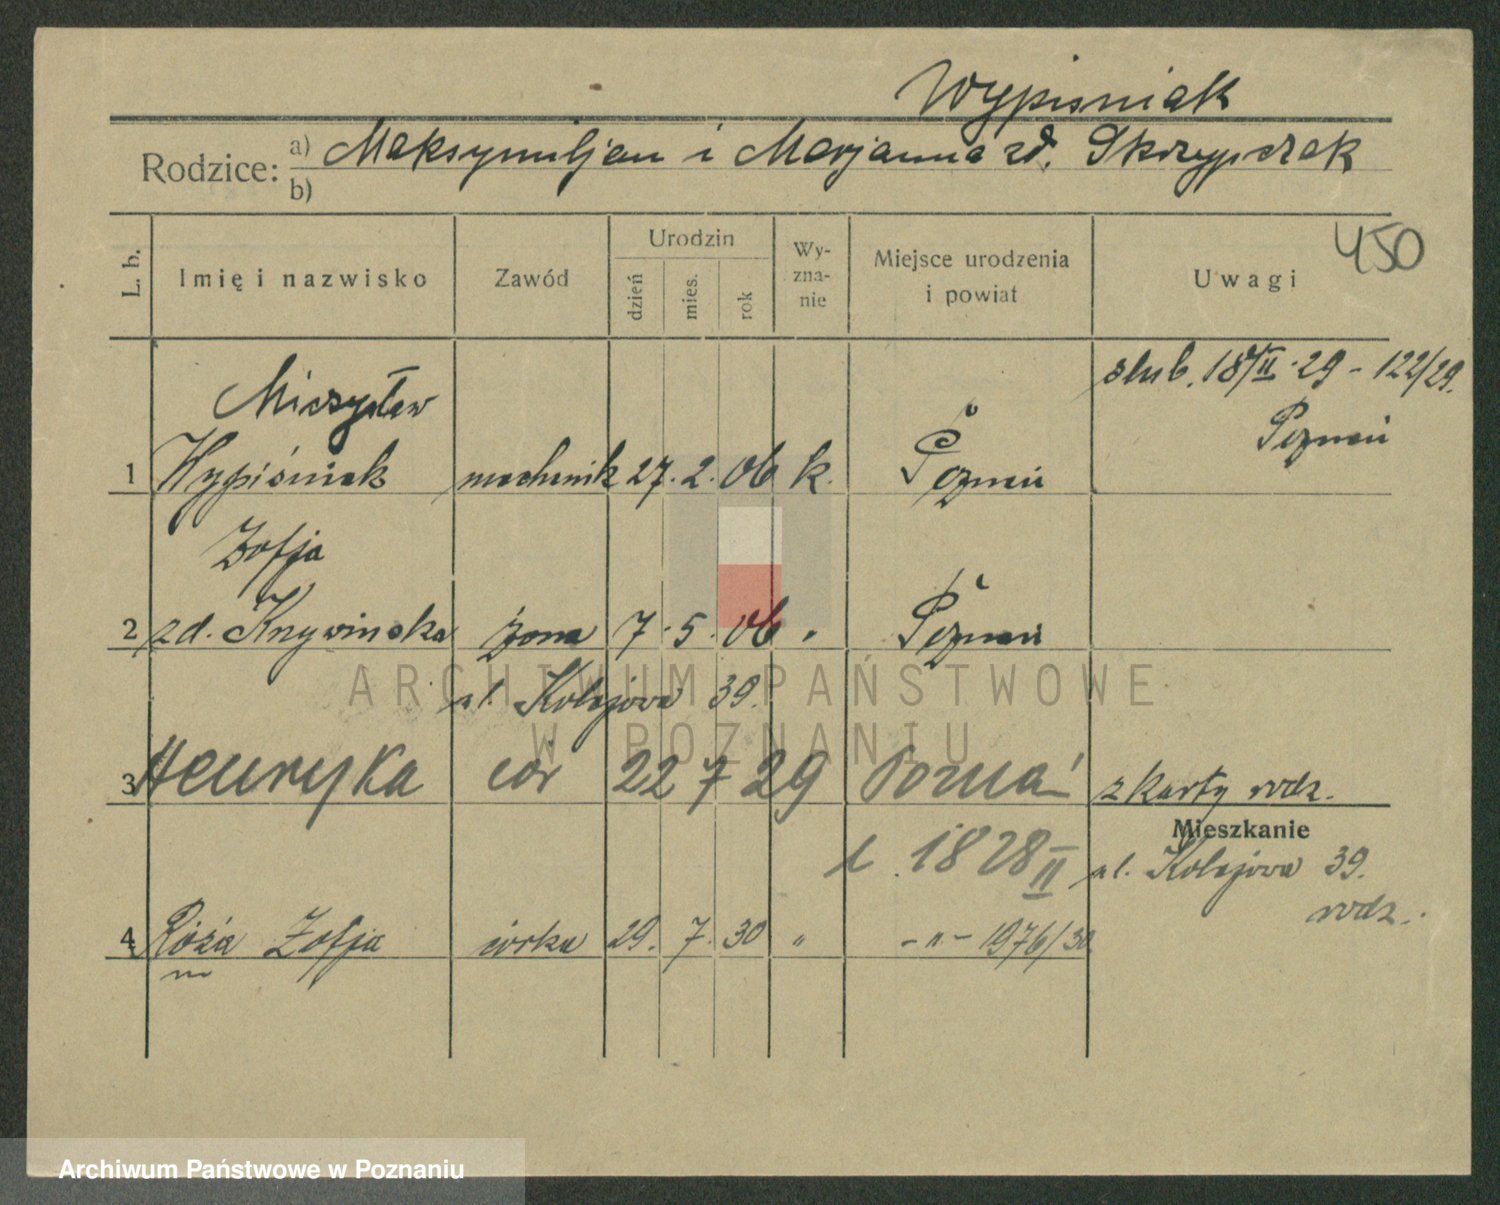 Wypiśniak
Rodzice: a) Maksymiljan i Marjanna zd. Skrzypczak
b)
450
L. b. Imię i nazwisko Zawód Urodzin dzień mies. rok Wy-zna-nie Miejsce urodzenia i powiat Uwagi
ślub. 18/II 29 - 122/29.
Poznań
Mieczysław
1 Wypiśniak mechanik 27. 2. 06 k. Poznań
Zofja
2 zd. Krzywinska żona 7. 5. 06 " Poznań
ul. Kolejowa 39.
ARCHIWUM PAŃSTWOWE
W POZNANIU
3 Henryka cór 22 7 29 Poznań z karty rodz.
Mieszkanie
1828 II ul. Kolejowa 39.
rodz.
4 Róża Zofja córka 29. 7. 30 " - " - 1976/30
Archiwum Państwowe w Poznaniu